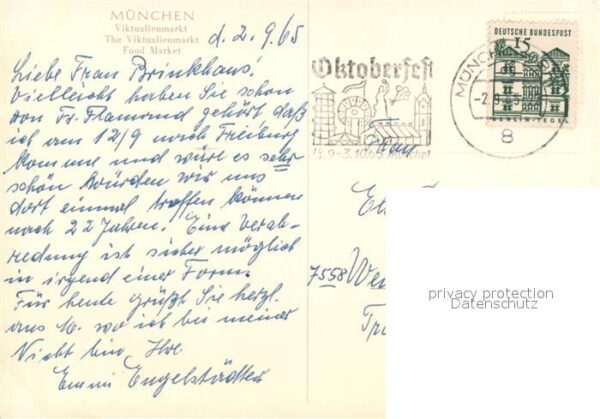 MÜNCHEN
Viktualienmarkt
The Viktualienmarkt
Food Market
d. 2. 9. 65
Liebe Frau Brinkhaus!
Vielleicht haben Sie schon
von Fr. Flamond gehört daß
ich am 12/9 nach Freiburg
komme und wäre es sehr
schön würden wir uns
dort einmal treffen können
nach 22 Jahren. Eine Verab-
redung ist sicher möglich
in irgend einer Form.
Für heute grüßt Sie herzl.
aus M. wo ich bei meiner
Nicht bin, Ihre
Emmi Engelstädter
Oktoberfest
DEUTSCHE BUNDESPOST
15
BERLIN-TEGEL
MÜNCHEN
8
Frau
7558
privacy protection
Datenschutz